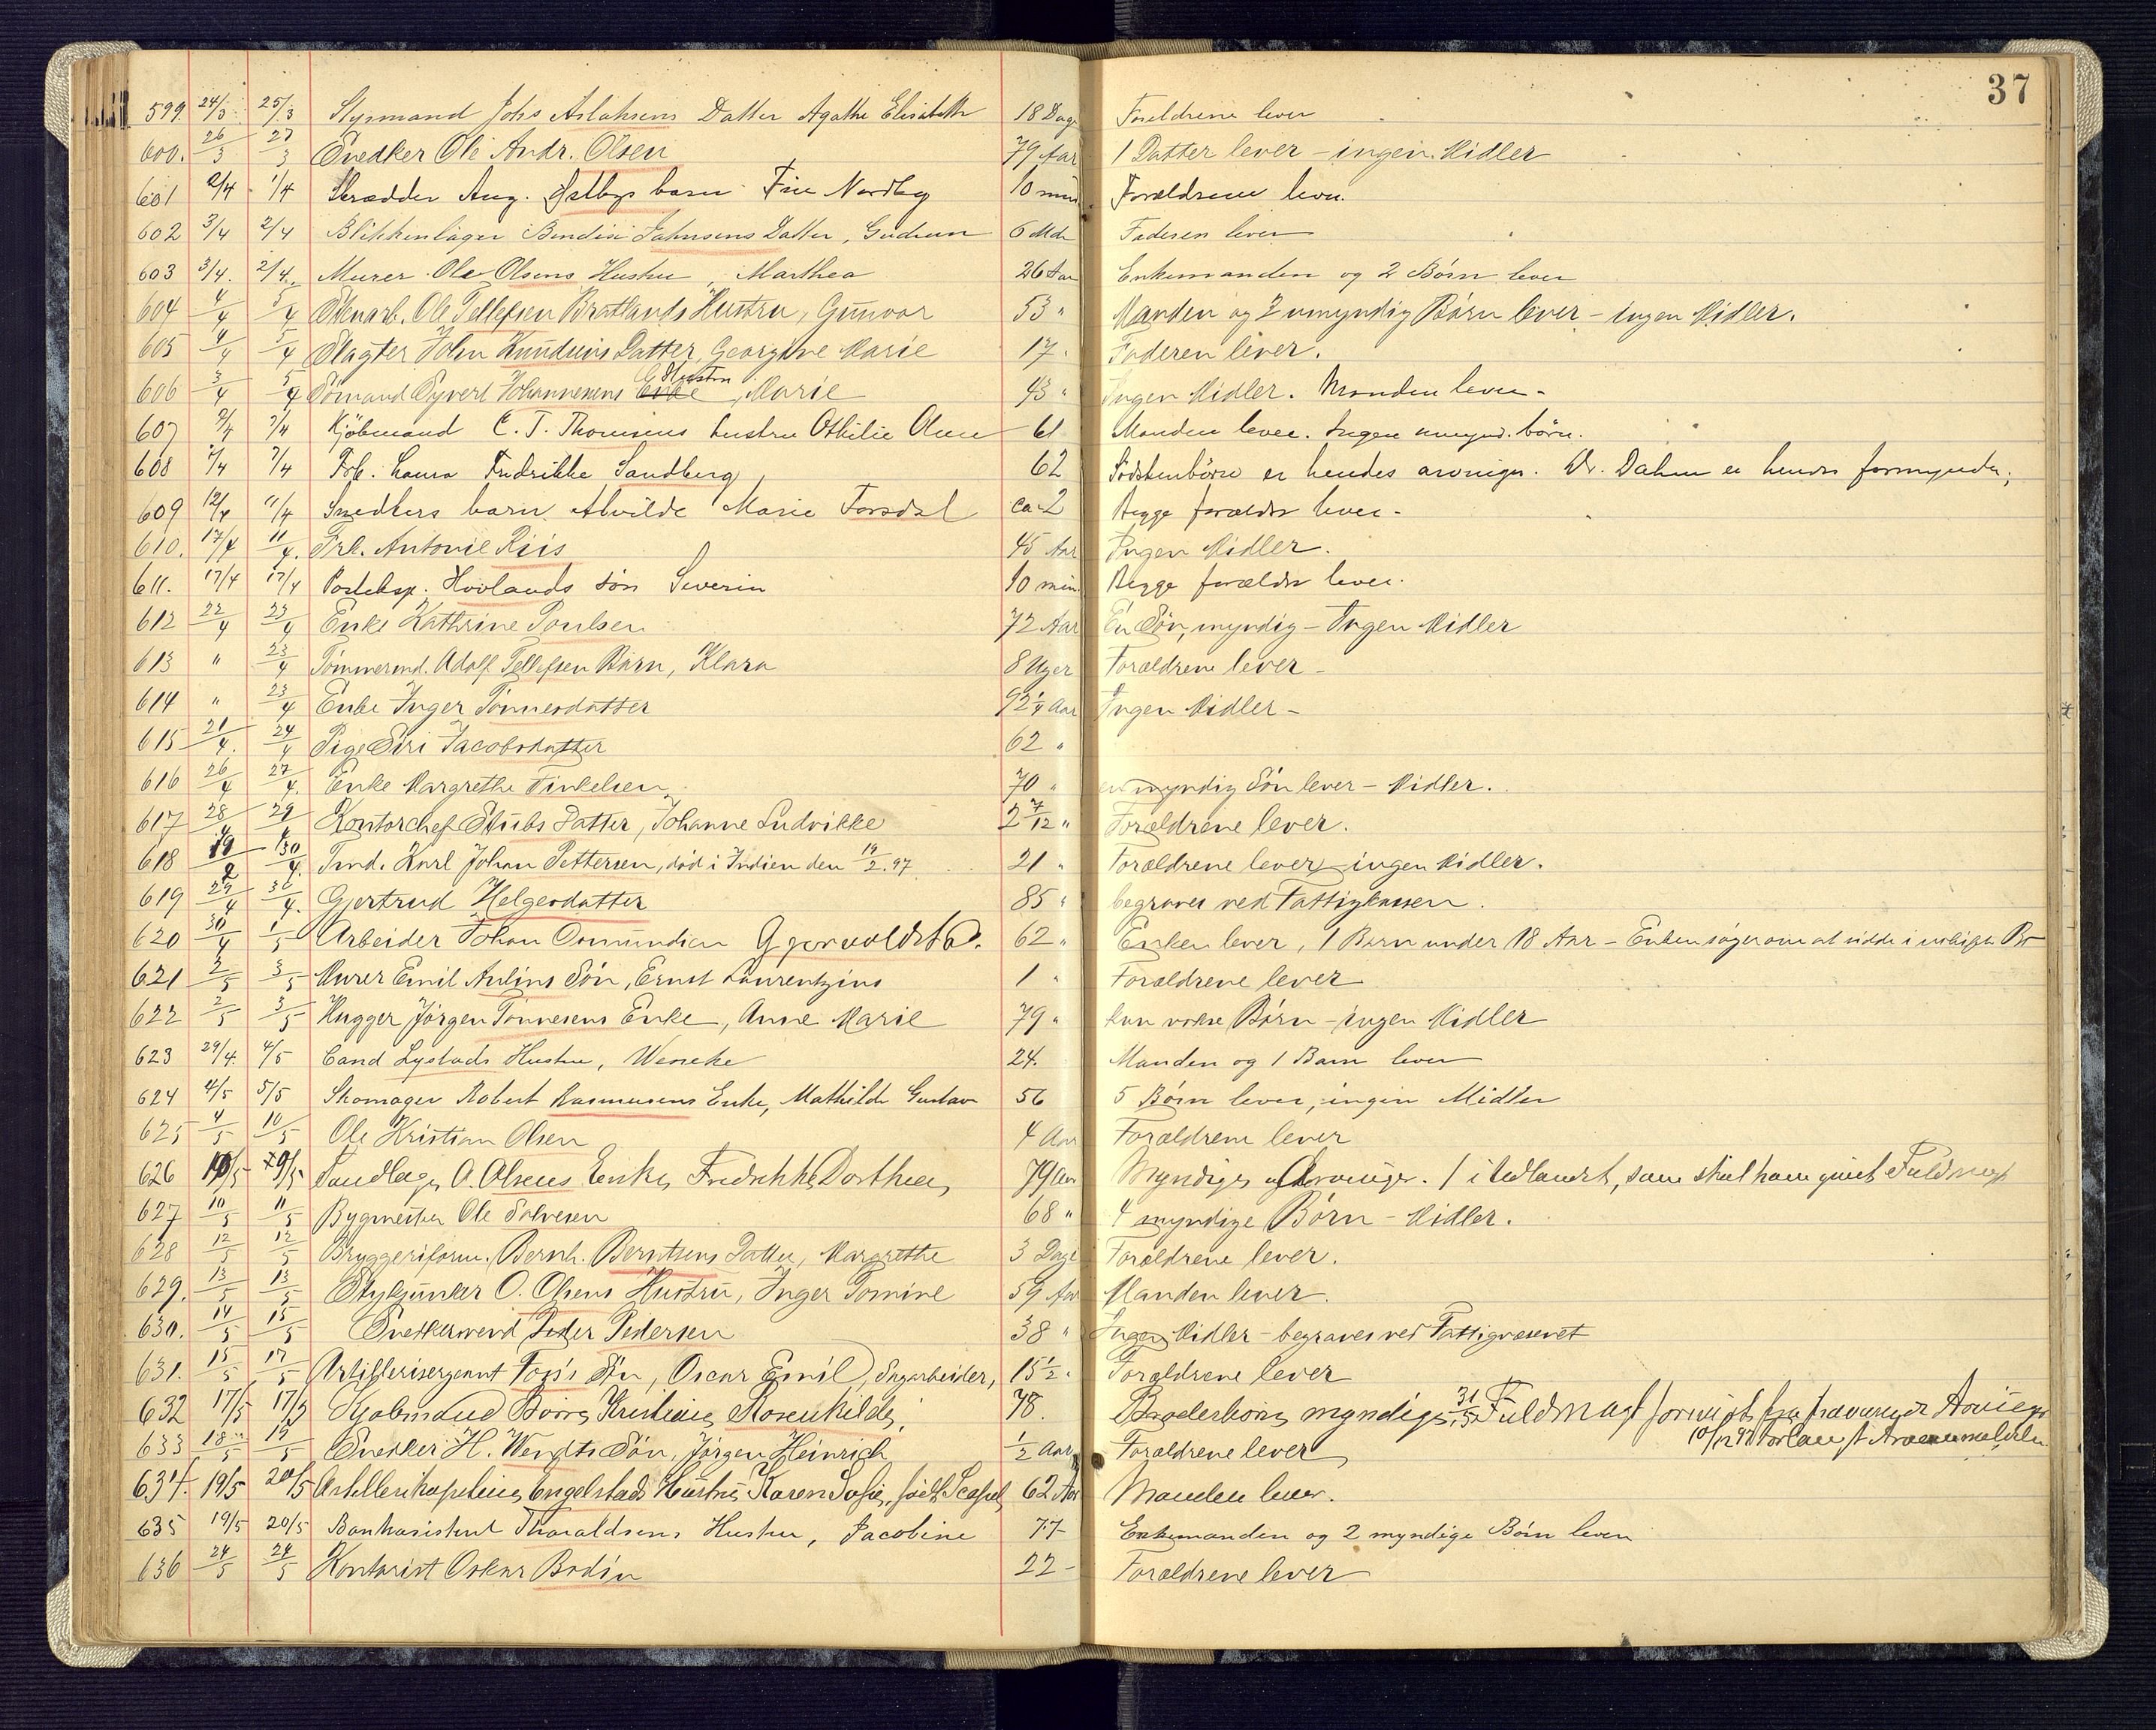 37
599. 24/3 25/3 Styrmand Johs Aslaksens Datter Agathe Elisabeth 18 Dage Forældrene lever
600. 26/3 27/3 Snedker Ole Andr. Olsen 79 Aar 1 Datter lever - ingen Midler
601 2/4 1/4 Skrædder Aug. barn 10 min Forældrene lever.
602 3/4 2/4 Blikkenslager Jahnsens Datter, Gudrun 6 Mdr Faderen lever
603 3/4. 2/4. Murer Ole Olsens Hustru, Marthea 26 Aar Enkemanden og 2 Børn lever
604 4/4 5/4 Stenarb. Ole Tellefsen Bratlands Hustru, Gunvor 53 " Manden og 2 umyndig Børn lever - ingen Midler.
605 4/4 5/4 Slagter John Knudsens Datter, Georgine Marie 17 " Faderen lever.
606 3/4 5/4 Sømand Syvert Johannesens Enke Hustru, Marie 43 " Ingen Midler. Manden lever -
607 7/4 7/4 Kjøbmand C. T. Thomsens hustru Othilie Olsen 61 Manden lever. Ingen umynd. børn.
608 7/4 7/4 Frk. Laura Fredrikke Sandberg 62 Sødskenbørn er hendes arvinger. Dr. Dahm er hendes formynder.
609 12/4 11/4 Snedkers barn Alvilde Marie Torsdal ca. 2 Begge forældre lever -
610. 17/4 11/4. Frk. Antonie Riis 45 Aar Ingen Midler.
611. 17/4 17/4 Posteksp. Hovlands søn Severin 10 min. Begge forældre lever.
612 22/4 23/4 Enke Kathrine Poulsen 72 Aar En Søn, myndig - Ingen Midler
613 " 23/4 Tømmermd. Adolf Tellefsen Barn, Klara 8 Uger Forældrene lever -
614 " 23/4 Enke Inger Tønnesdatter 92 1/4 Aar Ingen Midler -
615 21/4. 24/4 Pige Siri Jacobsdatter 62 "
616 26/4 27/4. Enke Margrethe Finkelsen 70 " en myndig Søn lever - Midler.
617 28/4 29/4 Kontorchef Stubs Datter, Johanne Ludvikke 2 7/12 " Forældrene lever.
618 19/2 30/4. Tmd. Karl Johan Pettersen, død i Indien den 19/2.97 21 " Forældrene lever ingen Midler.
619 29/4 30/4. Gjertrud Helgesdatter 85 " begraves ved Fattigkassen.
620 30/4 1/5 Arbeider Johan Osmundsen 62 " Enken lever, 1 Barn under 18 Aar - Enken søger om at sidde i uskiftet Bo
621 2/5 3/5 Murer Emil Aulins Søn, Ernst Laurentzius 1 " Forældrene lever
622 2/5 3/5 Hugger Jørgen Tønnesens Enke, Anne Marie 79 " kun voksne Børn - ingen Midler
623 29/4. 4/5 Cand Lystads Hustru, Wencke 24. Manden og 1 Barn lever
624 4/5 5/5 Skomager Robert Rasmussens Enke, Mathilde Gustava 56 5 Børn lever, ingen Midler
625 4/5 10/5 Ole Kristian Olsen 4 Aar Forældrene lever
626 10/5 Tandlæge O. Olsens Enke, Fredrikke Dorthea 79 Aar Myndige Arvinger. 1 i Udlandet, som skal have givet Fuldmagt
627 10/5 11/5 Bygmester Ole Salvesen 68 " 4 myndige Børn - Midler.
628 12/5 12/5 Bryggeriform. Bernh. Berntsens Datter, Margrethe 3 Dage Forældrene lever.
629. 13/5 13/5 Stykjunker O. Olsens Hustru, Inger Tomine 59 Aar Manden lever.
630. 14/5 15/5 Snedkersvend Peder Pedersen 38 " Ingen Midler - begraves ved Fattigvæsenet
631. 15/5 17/5 Artillerisergeant Foss's Søn, Oscar Emil, Dagarbeider, 15 1/2 " Forældrene lever
632 17/5 17/5 Kjøbmand Børre Kristian Rosenkilde, 78. Broderbørn, myndige, 31/5 Fuldmagt forevist fra Arvinger
633 18/5 19/5 Snedker H. Wendts Søn, Jørgen Heinrich 1/2 Aar Forældrene lever
634. 19/5 20/5 Artillerikaptein Engelstads Hustru Karen Sofie, født 62 Aar Manden lever.
635 19/5 20/5 Bankassistent Thoraldsens Hustru, Jacobine 77 Enkemanden og 2 myndige Børn lever
636 24/5 24/5 Kontorist Oskar Bodin 22 - Forældrene lever